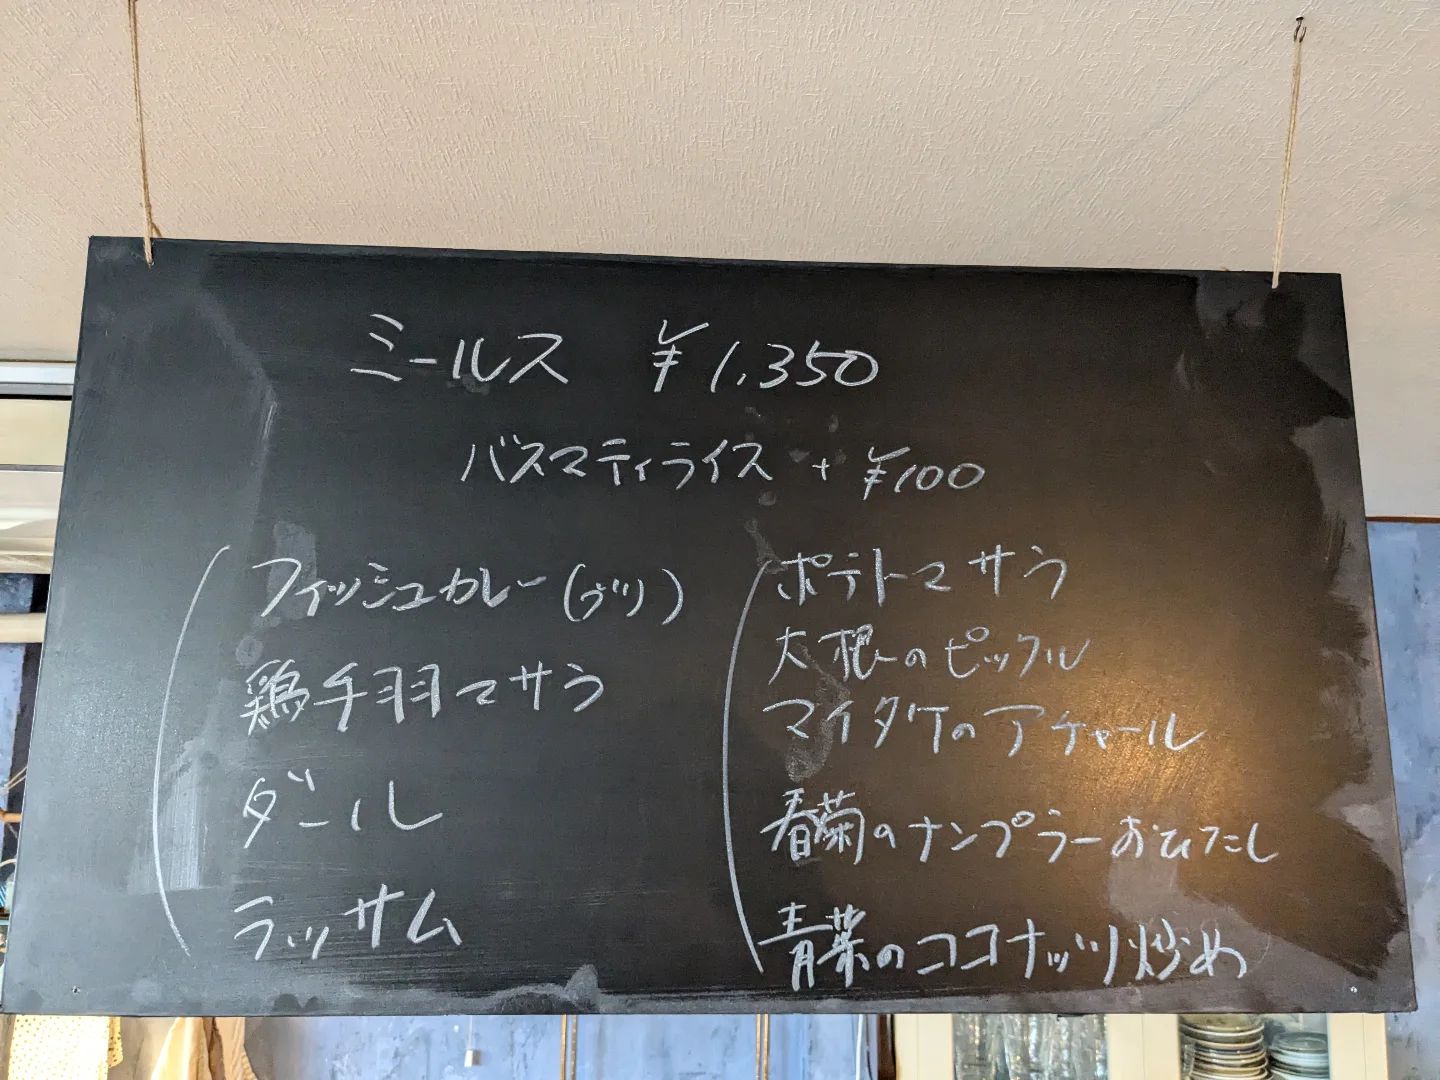 ミールス ¥1,350
バスマティライス + ¥100
フィッシュカレー(ブリ)
鶏手羽マサラ
ダール
ラッサム
ポテトマサラ
大根のピックル
マイタケのアチャール
春菊のナンプラーおひたし
青菜のココナッツ炒め